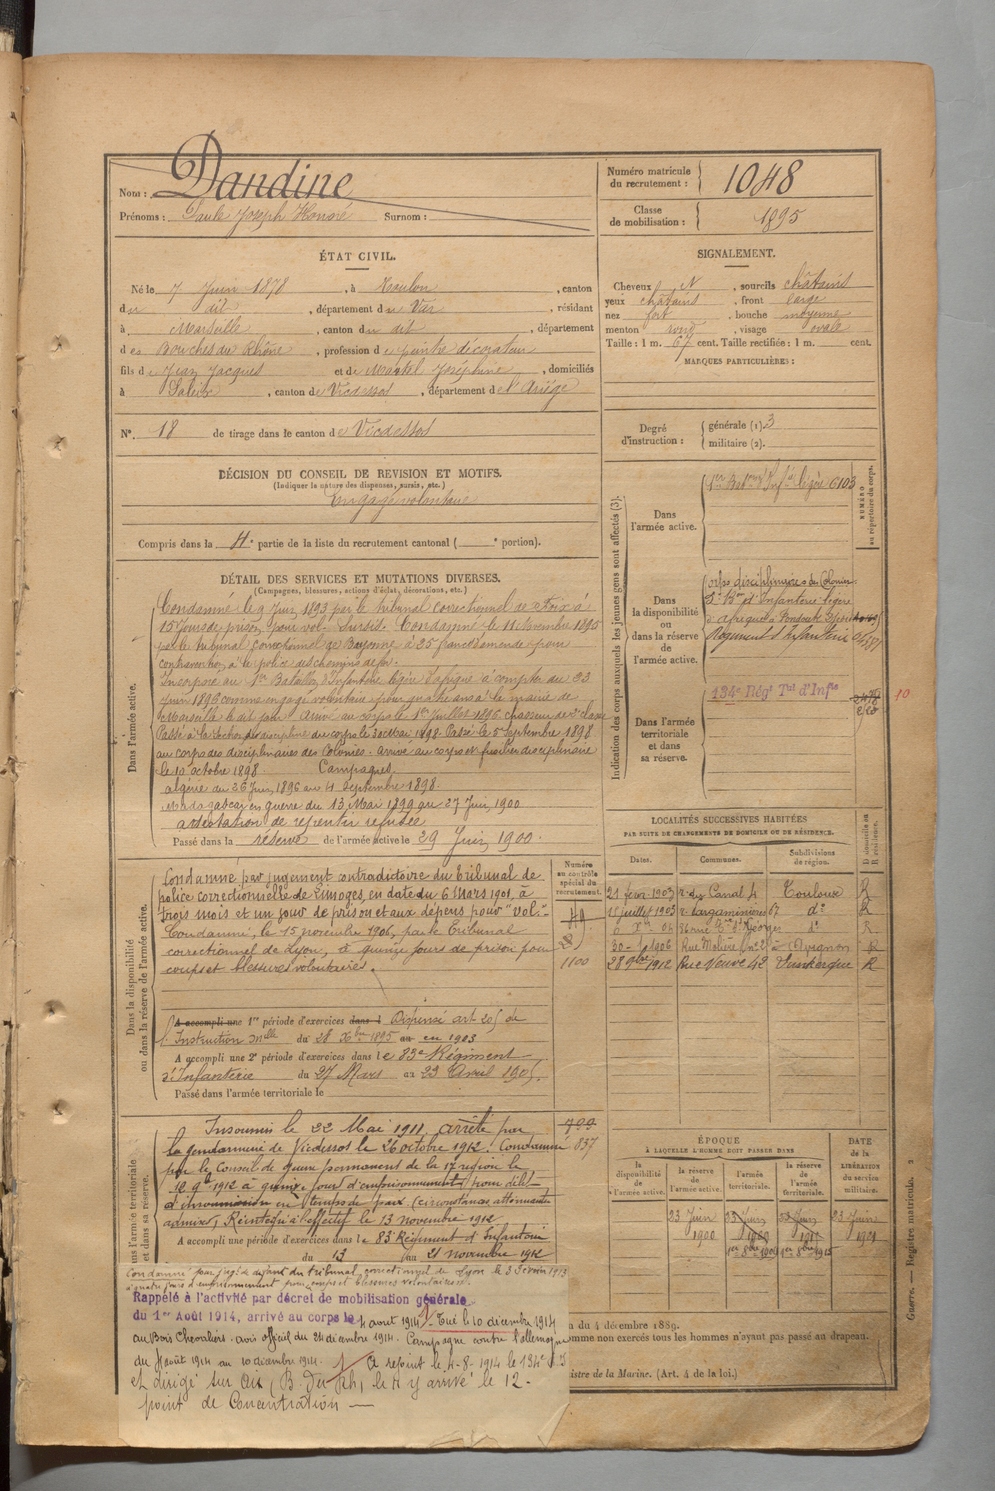 Nom : Dandine
Prénoms : Paule Joseph Honoré Surnom :
Numéro matricule du recrutement : 1048
Classe de mobilisation : 1895
ÉTAT CIVIL.
Né le 7 Juin 1878, à Toulon, canton
du dit, département du Var, résidant
à Marseille, canton du dit, département
des Bouches du Rhône, profession de peintre décorateur
fils de Jean Jacques et de Martel Joséphine, domiciliés
à Saleix, canton de Vicdessos, département de l'Ariège
N° 18 de tirage dans le canton de Vicdessos
DÉCISION DU CONSEIL DE REVISION ET MOTIFS.
(Indiquer la nature des dispenses, sursis, etc.)
Engagé volontaire
Compris dans la 4e partie de la liste du recrutement cantonal ( e portion).
SIGNALEMENT.
Cheveux N, sourcils châtains
yeux châtains, front large
nez fort, bouche moyenne
menton rond, visage ovale
Taille : 1 m. 67 cent. Taille rectifiée : 1 m. cent.
MARQUES PARTICULIÈRES :
Degré d'instruction :
générale (1). 3
militaire (2).
DÉTAIL DES SERVICES ET MUTATIONS DIVERSES.
(Campagnes, blessures, actions d'éclat, décorations, etc.)
Dans l'armée active.
Condamné le 9 Juin 1893 par le tribunal correctionnel de Foix à
15 jours de prison pour vol. Sursis. Condamné le 11 Novembre 1895
par le tribunal correctionnel de Bayonne à 25 francs d'amende pour
contravention à la police des chemins de fer.
Incorporé au 1er Bataillon d'Infanterie légère d'Afrique à compter du 23
Juin 1896 comme engagé volontaire pour quatre ans à la mairie de
Marseille le dit jour. Arrivé au corps le 1er Juillet 1896 chasseur de 2e classe
Passé à la section de discipline du corps le 3 août 1898. Passé le 5 Septembre 1898
au corps des disciplinaires des Colonies. Arrivé au corps et fusilier disciplinaire
le 10 octobre 1898. Campagnes
Algérie du 26 Juin 1896 au 4 Septembre 1898.
Madagascar en guerre du 13 Mai 1899 au 27 Juin 1900
attestation de repentir refusée
Passé dans la réserve de l'armée active le 29 Juin 1900.
Indication des corps auxquels les jeunes gens sont affectés (3).
NUMÉRO au répertoire du corps.
Dans l'armée active.
1er Bataillon d'Inf ie légère 6103
Dans la disponibilité ou dans la réserve de l'armée active.
Corps disciplinaires des Colonies
d'Infanterie légère
d'Afrique
Régiment d'Infanterie
Dans l'armée territoriale et dans sa réserve.
134e Régt Tal d'Infie
10
LOCALITÉS SUCCESSIVES HABITÉES
PAR SUITE DE CHANGEMENTS DE DOMICILE OU DE RÉSIDENCE.
Dates. Communes. Subdivisions de région. D domicile ou R résidence.
21 févr. 1903 r. du Canal 4 Toulouse R
15 juillet 1903 r. Largaminières 67 d° R
30 1906 Rue Molière n° 2 Avignon R
28 9bre 1912 Rue Neuve 42 Dunkerque R
Dans la disponibilité ou dans la réserve de l'armée active.
Numéro au contrôle spécial du recrutement.
Condamné par jugement contradictoire du Tribunal de
police correctionnelle de Limoges, en date du 6 Mars 1901, à
trois mois et un jour de prison et aux dépens pour "vol".
Condamné, le 15 novembre 1906, par le Tribunal
correctionnel de Lyon, à quinze jours de prison pour
coups et blessures volontaires.
1100
A accompli une 1re période d'exercices dans l Dispensé art 205 de
l'Instruction Melle du 28 Xbre 1895 au en 1903
A accompli une 2e période d'exercices dans le 83e Régiment
d'Infanterie du 27 Mars au 23 Avril 1905.
Passé dans l'armée territoriale le
Insoumis le 22 Mai 1911, arrêté par
la gendarmerie de Vicdessos le 26 octobre 1912. Condamné
par le Conseil de guerre permanent de la 17e région le
12 9bre 1912 à quinze jours d'emprisonnement pour délit
d'insoumission en temps de paix (circonstances atténuantes
admises). Réintégré à l'effectif le 13 novembre 1912
A accompli une période d'exercices dans le 83e Régiment d'Infanterie
du 13 au 21 novembre 1912
837
ÉPOQUE
À LAQUELLE L'HOMME DOIT PASSER DANS
la disponibilité de l'armée active. la réserve de l'armée active. l'armée territoriale. la réserve de l'armée territoriale.
DATE de la LIBÉRATION du service militaire.
23 Juin 1900
23 Juin
1er 8bre 1909
1er 8bre 1915
23 Juin 1921
Condamné par jugt de défaut du tribunal correctionnel de Lyon le 3 Février 1913
à quatre jours d'emprisonnement pour coups et blessures volontaires.
Rappelé à l'activité par décret de mobilisation générale
du 1er Août 1914, arrivé au corps le 4 août 1914. Tué le 10 décembre 1914
au Bois Chevaliers. avis officiel du 24 décembre 1914. Campagne contre l'Allemagne
du 4 août 1914 au 10 décembre 1914. A rejoint le 4-8-1914 le 134e
et dirigé sur Arles (B. du Rh) le 11 y arrivé le 12.
point de Concentration
du 4 décembre 1889.
comme non exercés tous les hommes n'ayant pas passé au drapeau.
istre de la Marine. (Art. 4 de la loi.)
Guerre. — Registre matricule.